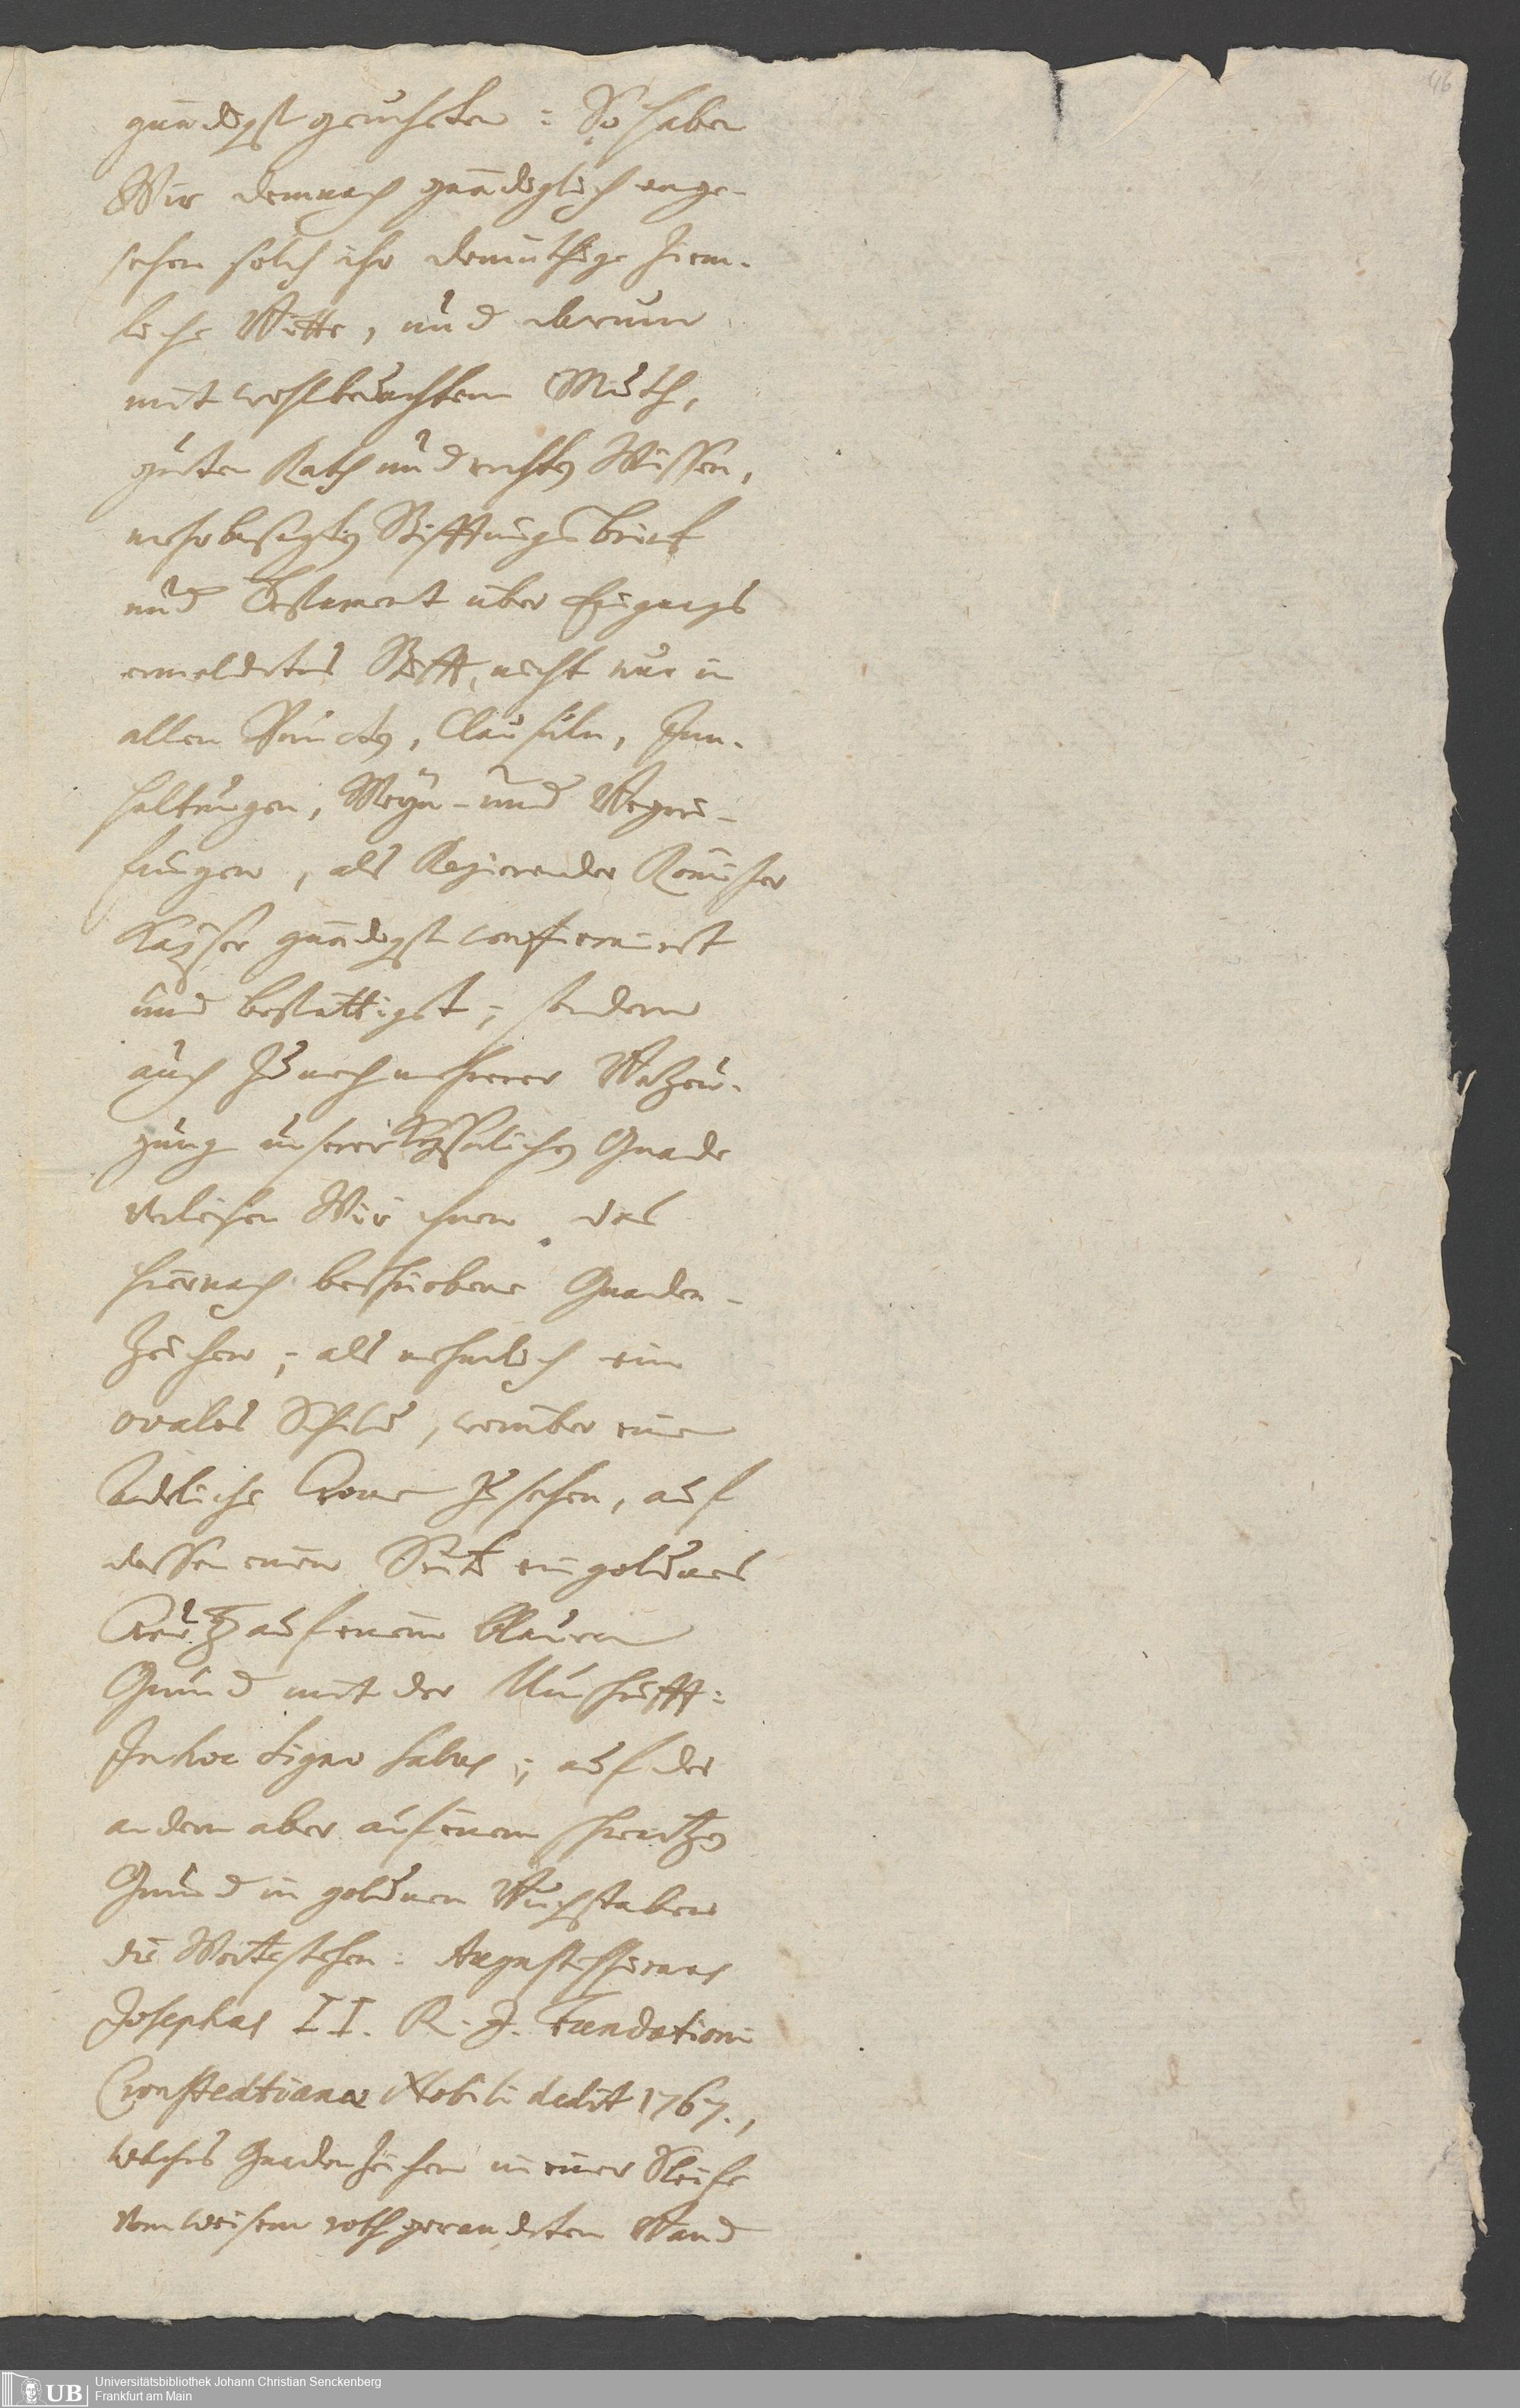 46
gnädigst geruheten : So haben
Wir demnach gnädiglich ange-
sehen solch ihr demüthige ziem-
liche Bitte, und darum
mit wohlbedachtem Muth,
guten Rath und rechten Wissen,
mehrbesagten Stifftungs brief
und Testament über Eingangs
ermeldetes Stifft, nicht nur in
allen Puncten, Clausuln, Inn-
haltungen, Meyn- und Begrei-
fungen, als Regierender Römischer
Kayser gnädigst confirmirt
und bestättigt ; sondern
auch zu noch mehrerer Bezeu-
gung unserer Kayserlichen Gnade
verleihen Wir ihnen das
hiernach beschriebene Gnaden-
Zeichen ; als nehmlich ein
ovales Schild, worüber eine
Adeliche Crone zu sehen, auf
dessen einen Seite ein goldenes
Creutz auf einem blauen
Grund mit der Umschrifft :
In hoc Signo Salus ; auf der
andern aber auf einem schwartzen
Grund in goldenen Buchstaben
die Worte stehen : Augustissimus
Josephus II. R. J. Fundationi
Cronstettianae Nobili dedit 1767.,
welches Gnadenzeichen in einer Schleife
von weisem roth gerandeten Band
UB Universitätsbibliothek Johann Christian Senckenberg
Frankfurt am Main